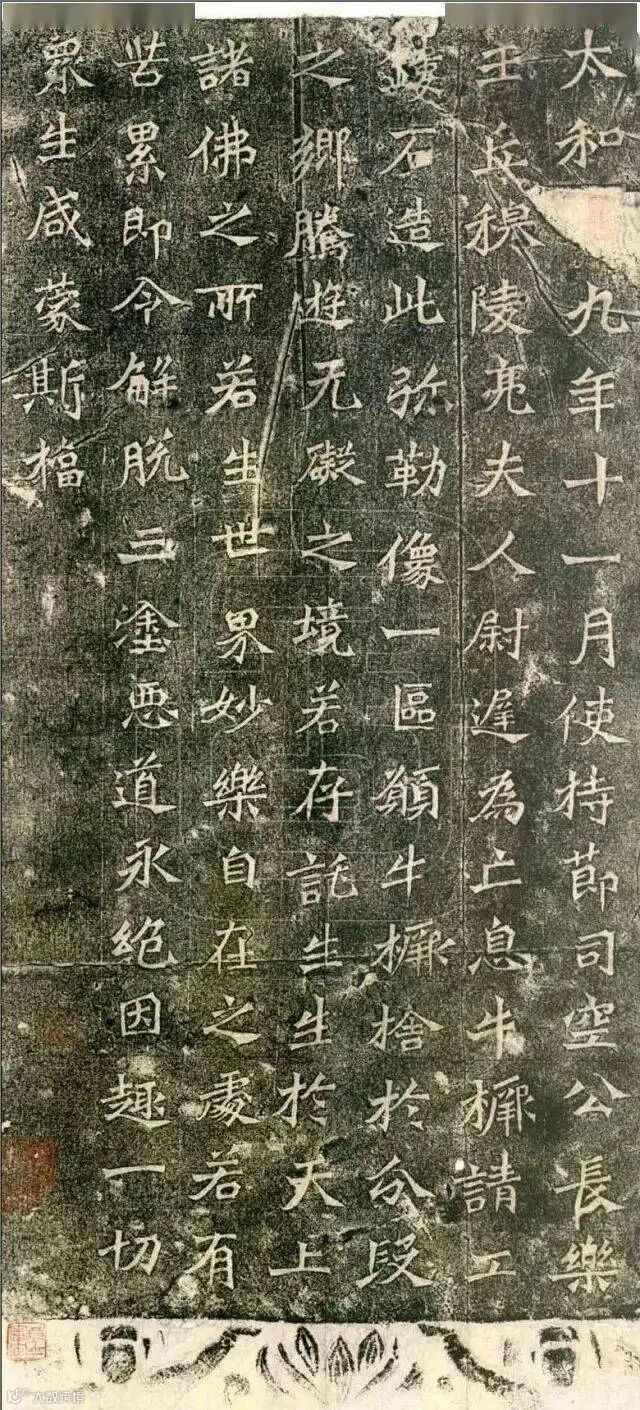 太和九年十一月使持節司空公長樂
王丘穆陵亮夫人尉遲為亡息牛橛請工
鏤石造此弥勒像一區願牛橛捨於分段
之鄉騰遊无礙之境若存託生生於天上
諸佛之所若生世界妙樂自在之處若有
苦累即令解脱三塗惡道永絶因趣一切
眾生咸蒙斯福
大数跨境